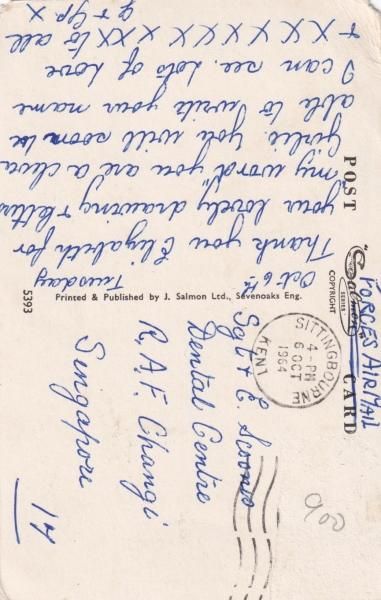 POST CARD
"Salmon"
SERIES
COPYRIGHT
FORCES AIR MAIL
Oct 6th Tuesday
Thank you Elizabeth for
your lovely drawing & letters
"my word" you are a clever
girlie. You will soon be
able to write your name
I can see. Lots of love
+ X X X X X X X X to all
Printed & Published by J. Salmon Ltd., Sevenoaks Eng.
5393
SITTINGBOURNE
4-PM
6 OCT
1964
KENT
Dental Centre
R.A.F. Changi
Singapore
14
900